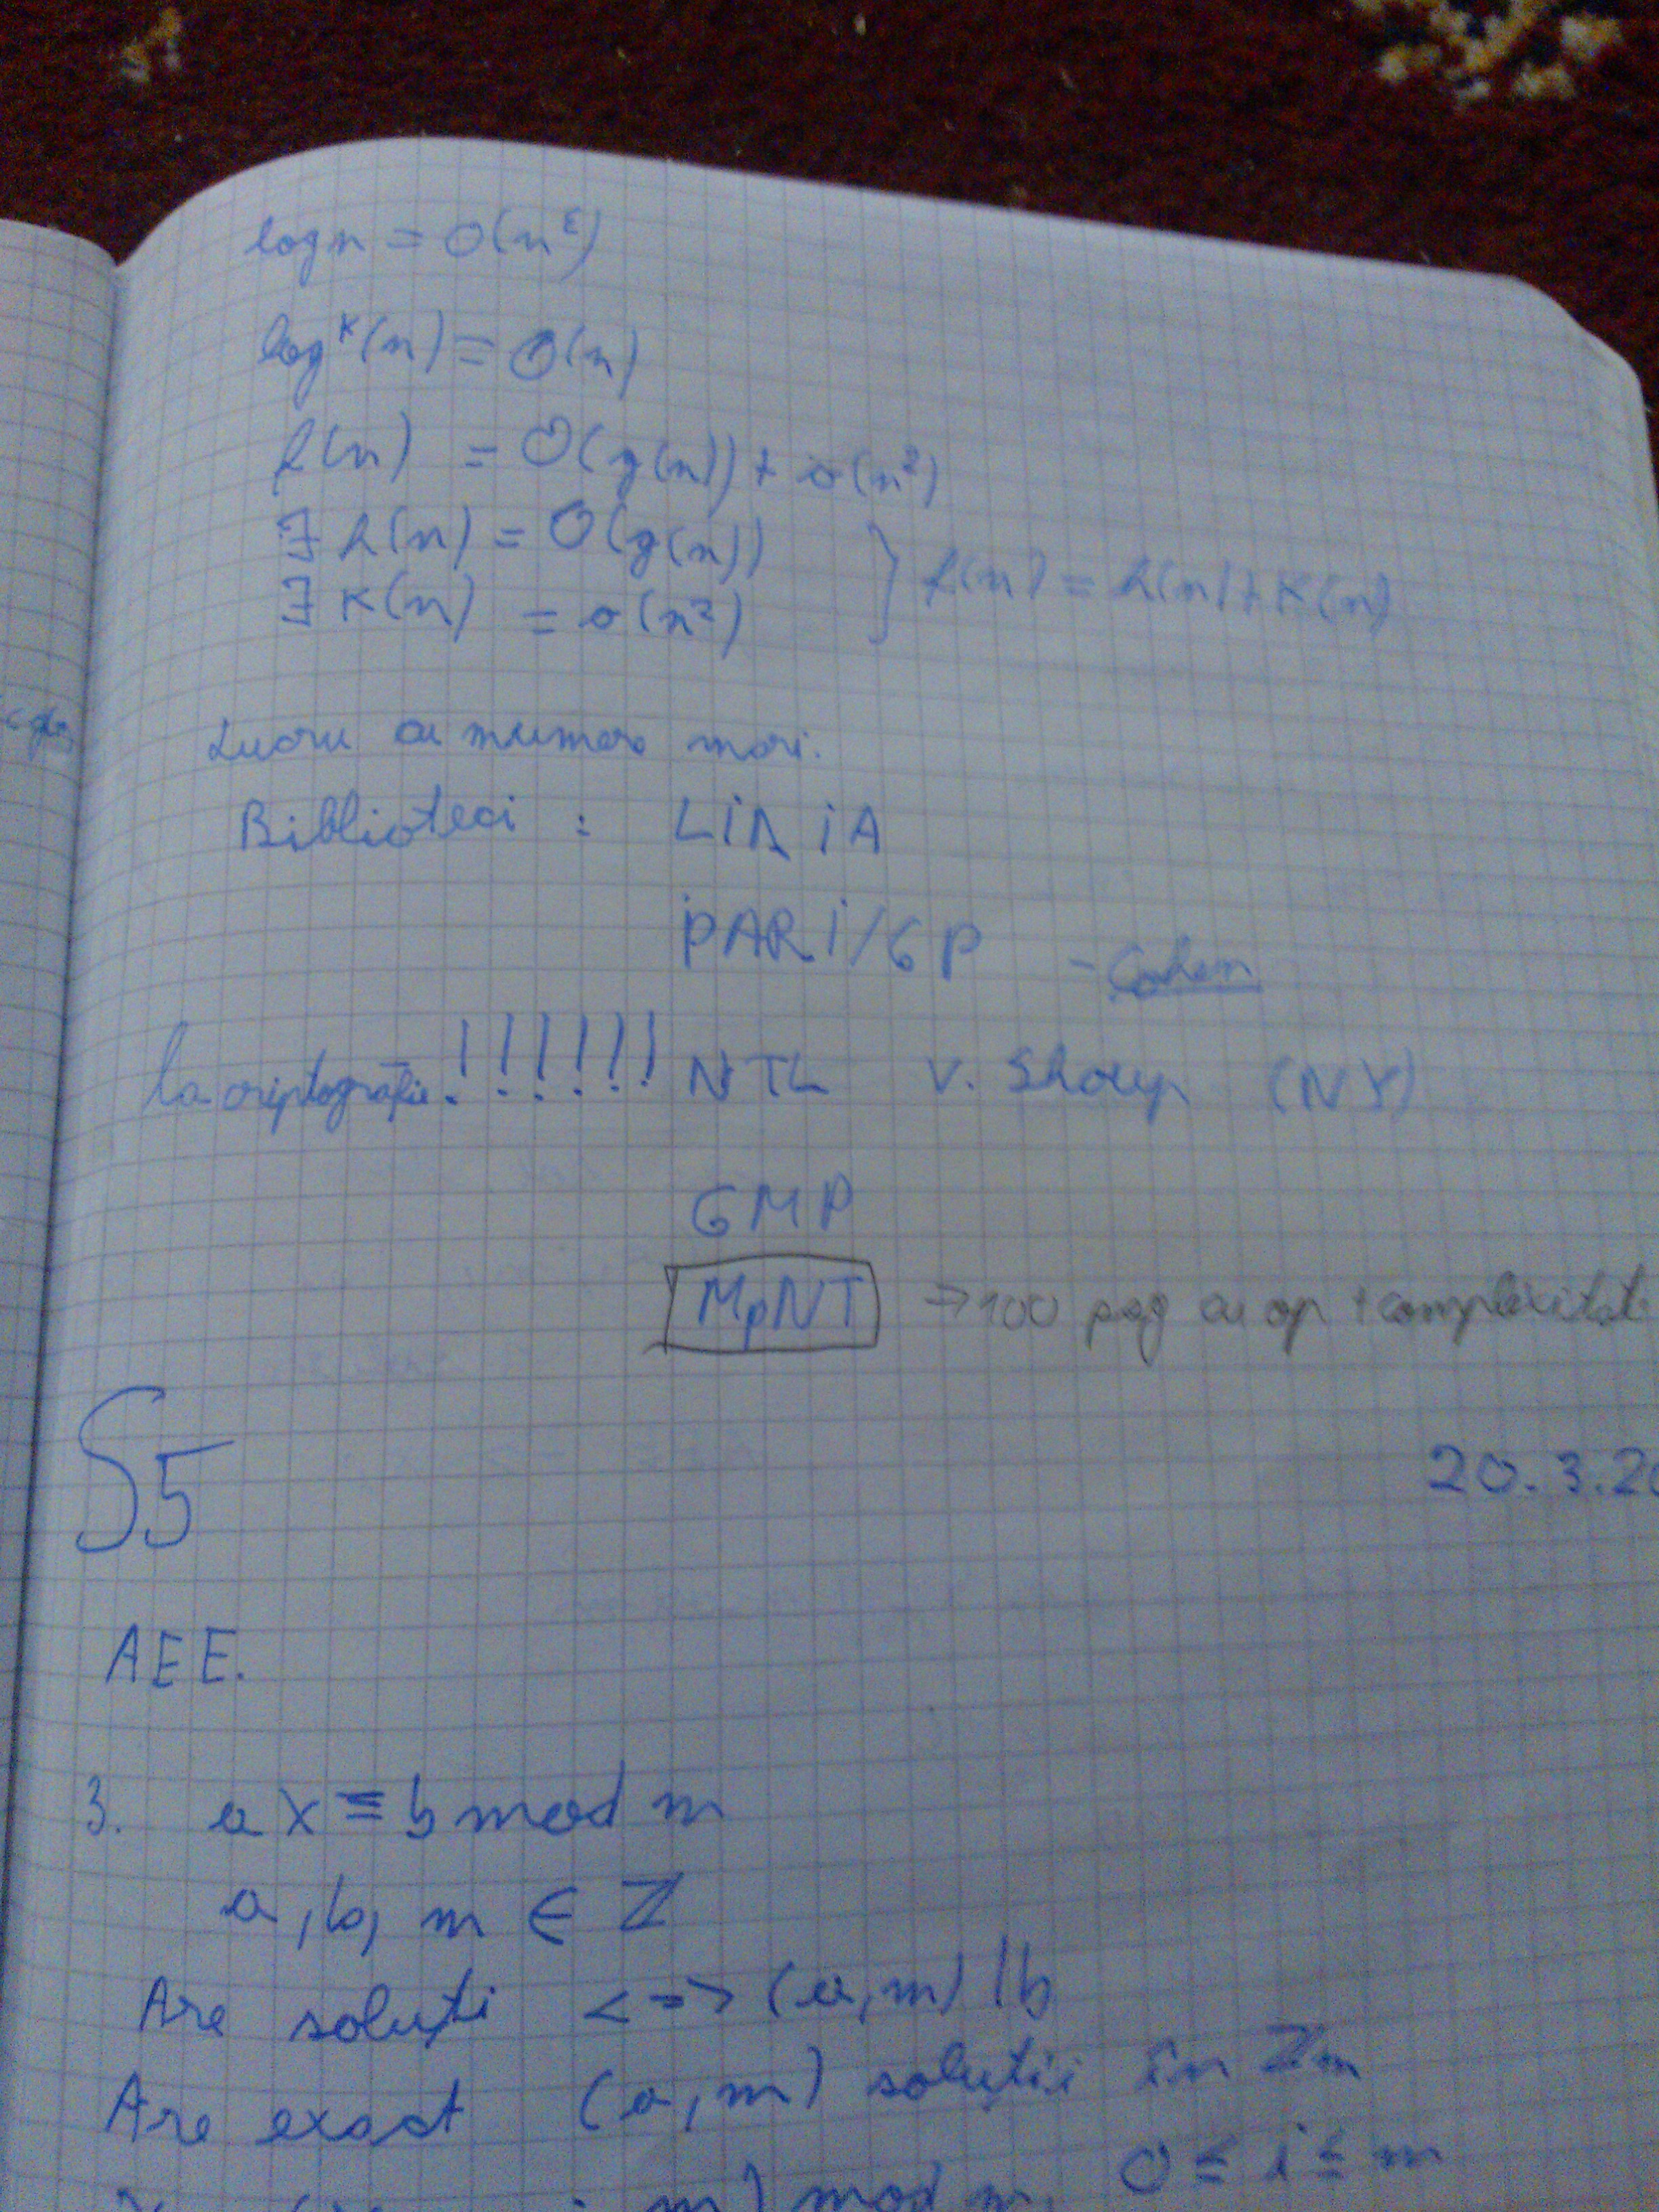 log n = O(n^ε)
log^k(n) = O(n)
f(n) = O(g(n)) + o(n²)
∃ h(n) = O(g(n))
∃ k(n) = o(n²) } f(n) = h(n) + k(n)
Lucru cu numere mari.
Biblioteci : LiDiA
PARI/GP - Cohen
la criptografie !!!!!! NTL V. Shoup (NY)
GMP
MpNT ⇒ 100 pag cu op + complexitate
S5 20.3.20
AEE.
3. ax ≡ b mod m
a, b, m ∈ ℤ
Are soluți <=> (a, m) | b
Are exact (a, m) soluții în ℤm
m) mod m, 0 ≤ i ≤ m